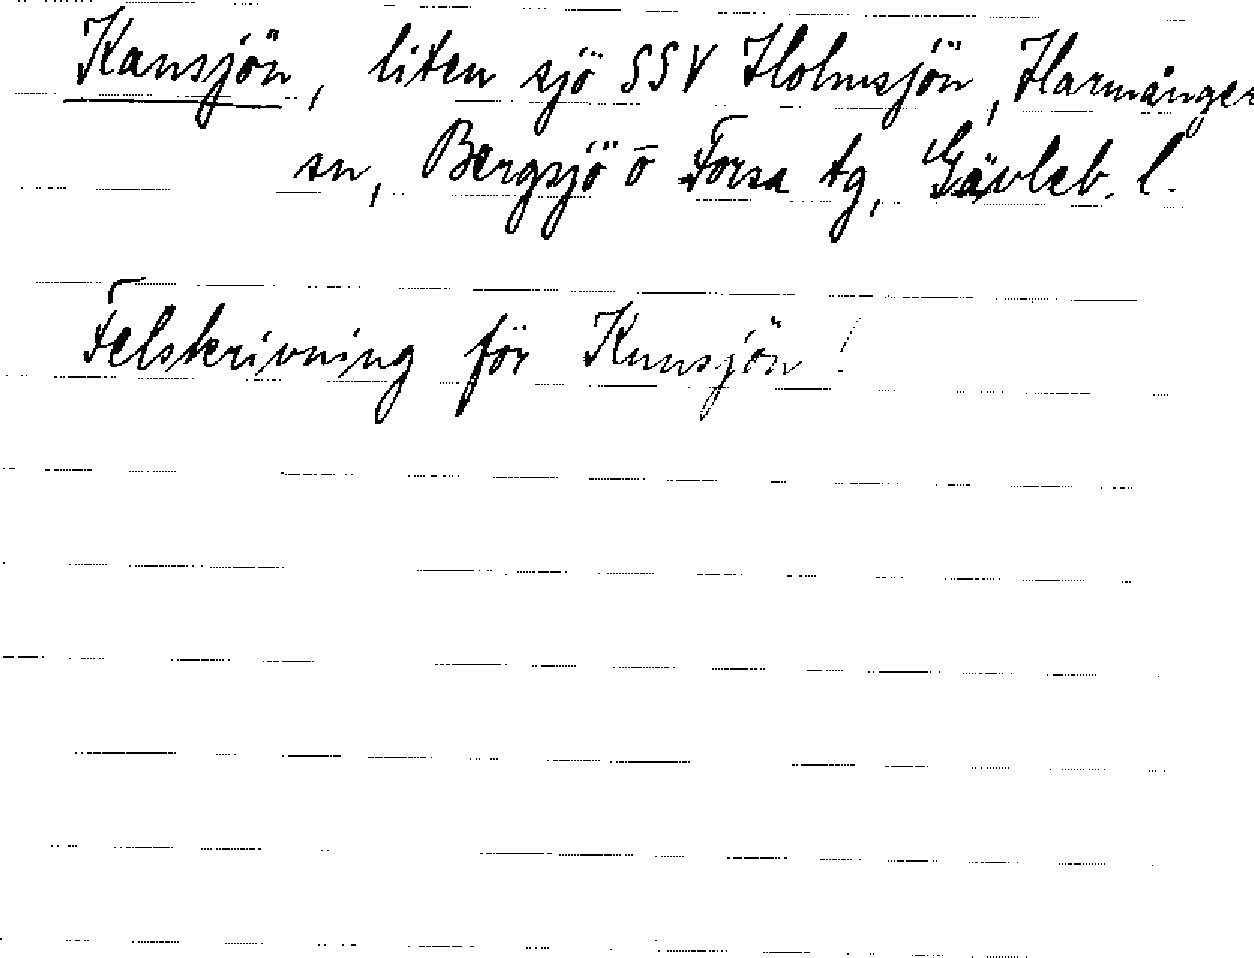 Kansjön, liten sjö SSV Holmsjön, Harmånger
sn, Bergsjö o Forsa tg, Gävleb. l.
Felskrivning för Kunsjön!